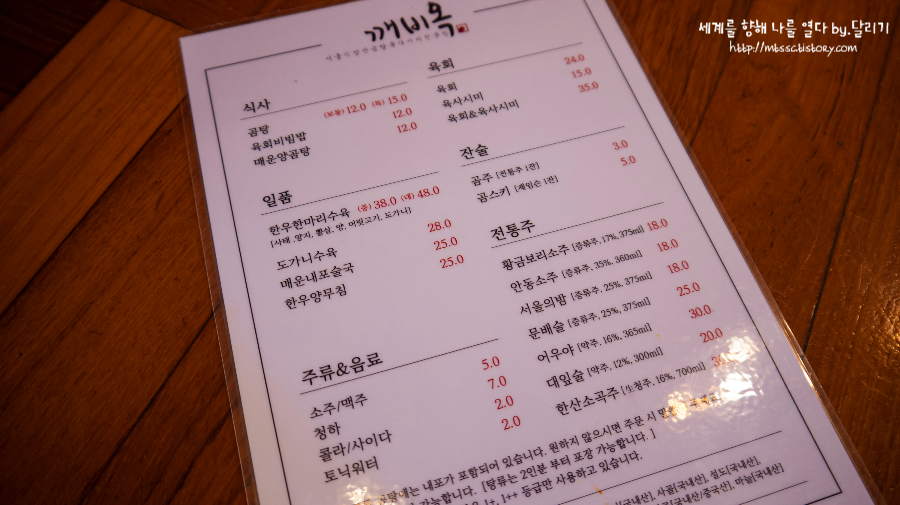 세계를 향해 나를 열다 by.달리기
http://mtssc.tistory.com
깨비옥
식사
곰탕 (보통) 12.0 (특) 15.0
육회비빔밥 12.0
매운양곰탕 12.0
일품
한우한마리수육 (중) 38.0 (대) 48.0
[사태, 양지, 볼살, 양, 머릿고기, 도가니]
도가니수육 28.0
매운내포술국 25.0
한우양무침 25.0
주류&음료
소주/맥주 5.0
청하 7.0
콜라/사이다 2.0
토닉워터 2.0
육회
육회 24.0
육사시미 15.0
육회&육사시미 35.0
잔술
곰주 [전통주 1잔] 3.0
곰스키 [제임슨 1잔] 5.0
전통주
황금보리소주 [증류주, 17%, 375ml] 18.0
안동소주 [증류주, 35%, 360ml] 18.0
서울의밤 [증류주, 25%, 375ml] 18.0
문배술 [증류주, 25%, 375ml] 25.0
어우야 [약주, 16%, 365ml] 30.0
대잎술 [약주, 12%, 300ml] 20.0
한산소곡주 [生청주, 16%, 700ml]
곰탕에는 내포가 포함되어 있습니다. 원하지 않으시면 주문 시
가능합니다. [탕류는 2인분 부터 포장 가능합니다.]
1+, 1++ 등급만 사용하고 있습니다.
사골[국내산], 설도[국내산]
[국내산/중국산], 마늘[국내산]